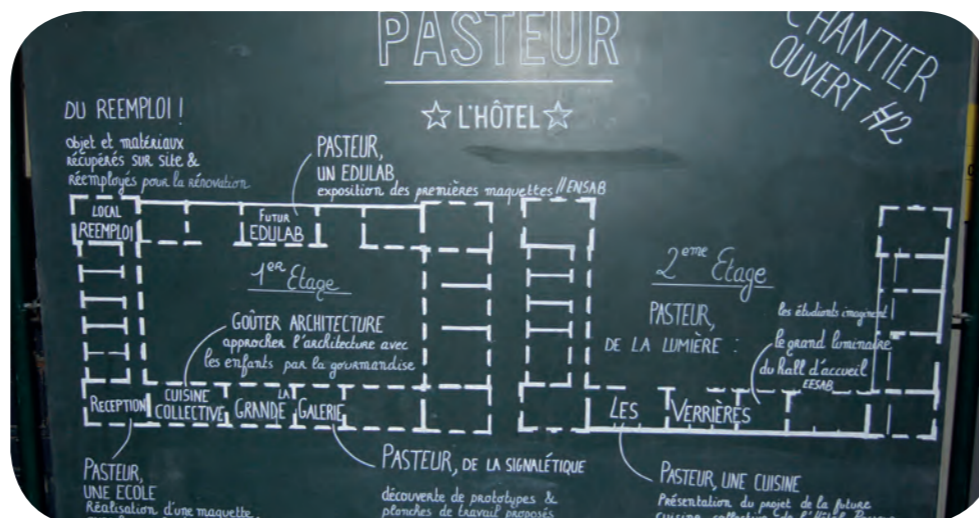 PASTEUR
☆ L'HÔTEL ☆
CHANTIER
OUVERT #2
DU REEMPLOI !
objet et matériaux
récupérés sur site &
réemployés pour la rénovation
PASTEUR,
UN EDULAB,
exposition des premières maquettes // ENSAB
LOCAL
REEMPLOI
FUTUR
EDULAB
1ER Etage
GOÛTER ARCHITECTURE
approcher l'architecture avec
les enfants par la gourmandise
RECEPTION
CUISINE
COLLECTIVE
LA
GRANDE GALERIE
2eme Etage
PASTEUR,
DE LA LUMIÈRE :
les étudiants imaginent
le grand luminaire
du hall d'accueil
EESAB
LES VERRIÈRES
PASTEUR,
UNE ECOLE
Réalisation d'une maquette
PASTEUR, DE LA SIGNALÉTIQUE
découverte de prototypes &
planches de travail proposés
PASTEUR, UNE CUISINE
Présentation du projet de la future